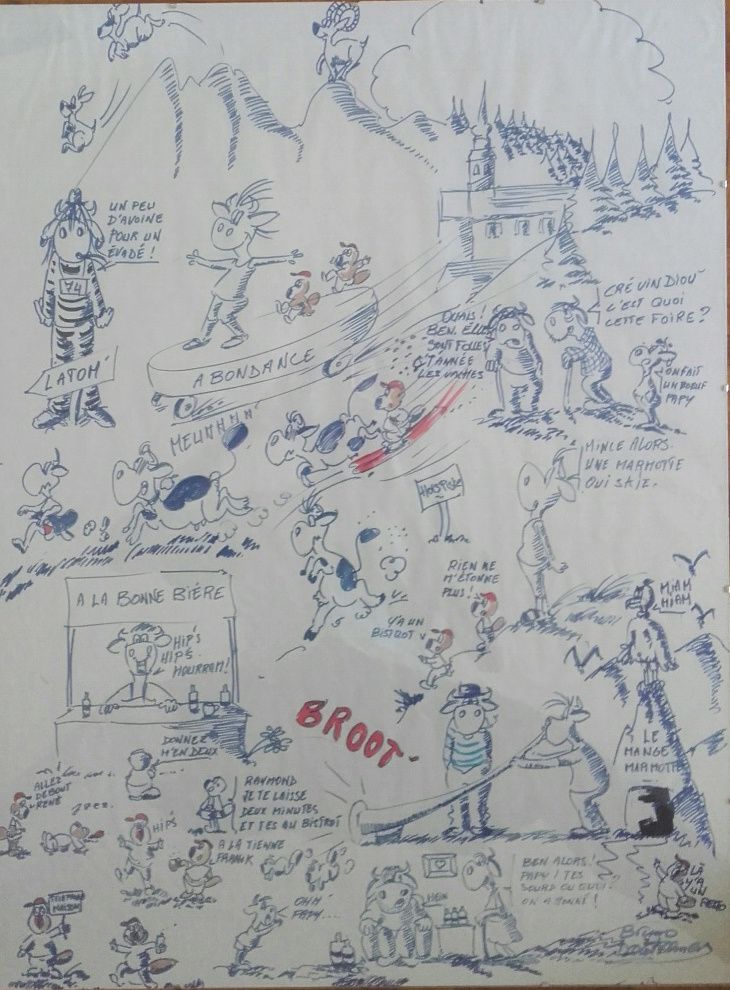 UN PEU
D'AVOINE
POUR UN
ÉVADÉ !
74
LATOH'
ABONDANCE
OUAIS !
BEN. ELLES
SONT FOLLES
C'TANNÉE
LES VACHES
CRÉ VIN DIOU
C'EST QUOI
CETTE FOIRE ?
ON FAIT
UN BOEUF
PAPY
MEUHHHH'
MINCE ALORS.
UNE MARMOTTE
QUI SKIE.
HORS PISTE
RIEN NE
M'ÉTONNE
PLUS !
Y'A UN
BISTROT
MIAM
MIAM
A LA BONNE BIÈRE
HIPS
HIPS
HOURRAH !
DONNEZ
M'EN DEUX
BROOT
LE
MANGE
MARMOTTE
ALLEZ
DEBOUT
RENÉ
HIPS
RAYMOND
JE TE LAISSE
DEUX MINUTES
ET T'ES AU BISTROT
A LA TIENNE
FRANCK
OHH
PAPY...
HEIN
BEN ALORS !
PAPY ! T'ES
SOURD OU QUOI.
ON A SONNÉ !
LÀ
Y'A
UN
MAISON
Bruno